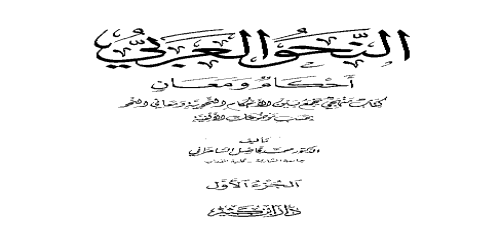 النحو العربي
أحكام ومعان
كتاب منهجي يجمع بين الأحكام النحوية ومعاني النحو
بحسب موضوعات الألفية
تأليف
الدكتور محمد فاضل السامرائي
جامعة الشارقة - كلية الآداب
الجزء الأول
دار ابن كثير